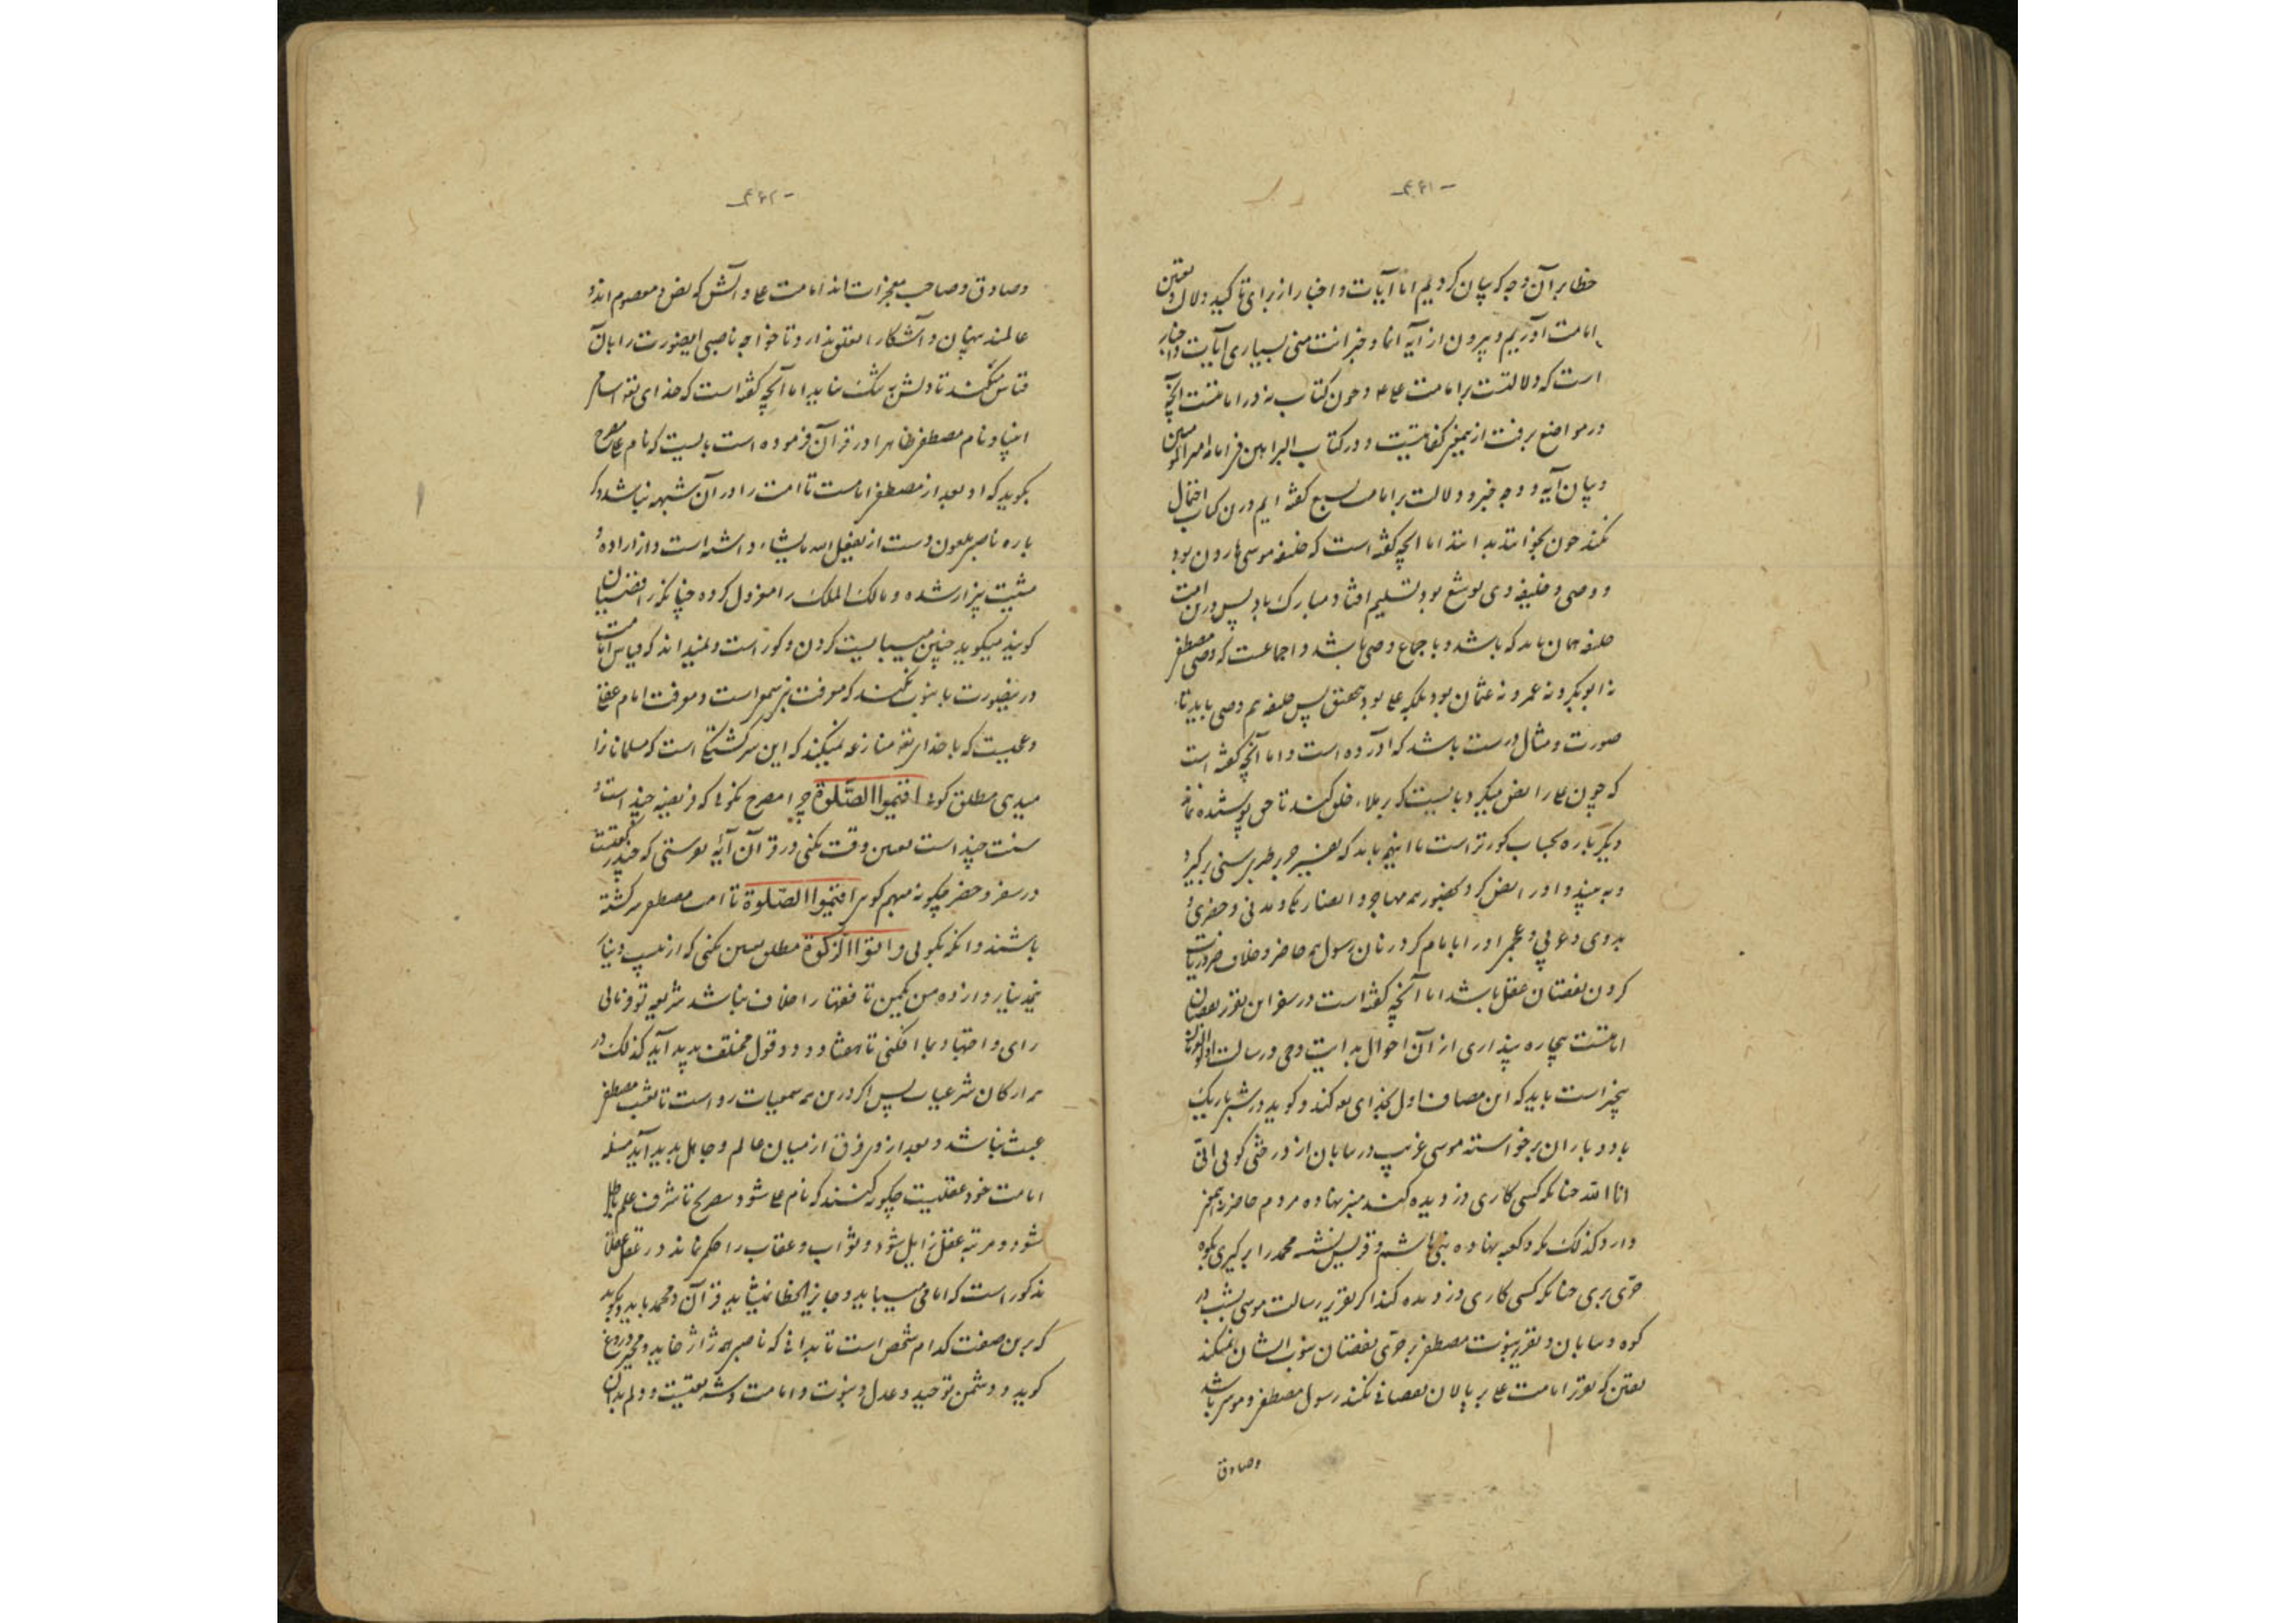 -۴۴۱-
خطا بر آن وجه که بیان کردیم اما آیات و اخبار از برای تأکید دلالت و تعیین
امامت آوریم و بیرون از آیه انما و خبر انت منی بسیاری آیات و اخبار
است که دلالتست بر امامت علی و چون کتاب نه در امامتست آنچه
در مواضع برفت از بهر کفایتست و در کتاب البراهین فی امامة امیرالمؤمنین
و بیان آیه و وجه خبر و دلالت بر امامت گفته ایم درین کتاب احتمال
نکند چون بخوانند بدانند اما آنچه گفته است که خلیفه موسی هارون بود
و وصی و خلیفه وی یوشع بود تسلیم افتاد مبارک باد پس درین امت
خلیفه همان باید که باشد و باجماع وصی باشد و اجماعست که وصی مصطفی
نه ابوبکر و نه عمر و نه عثمان بود بلکه علی بود پس خلیفه هم وصی باید تا
صورت و مثال درست باشد که آورده است و اما آنچه گفته است
که چون علی را نص میکرد بایست که بر ملاء خلق کند تا حق پوشیده نماند
دیگر باره کورتر است باید که تفسیر جریر طبری سنی برگیرد
و به بیند و او را نص کرد بحضور همه مهاجر و انصار مکی و مدنی و حضری و
بدوی و عربی و عجم او را امام کرد زنان رسول همه حاضر و خلاف ضروریات
کردن نقصان عقل باشد اما آنچه گفته است در سفر این تقریر نقصان
امامتست بیچاره پنداری از آن احوال بدایت وحی و رسالت
بیخبر است باید که این مصاف اول بخدای کند و گوید در شب تاریک
باد و باران برخواسته موسی غریب در بیابان از درختی گویی انی
انا الله چنانکه کسی کاری دزدیده کند منبر نهاده مردم حاضر
دارد و کذلک مکه و کعبه نهاده بنی هاشم و قریش نشسته محمد را برگیری بکوه
حری بری چنانکه کسی کاری دزدیده کند اگر تقریر رسالت موسی بشب در
کوه و بیابان و تقریر نبوت مصطفی بر حری نقصان نبوت ایشان نمیکند
تعیین و تقریر امامت علی بر پالان نقصانی نکند رسول مصطفی و موسی باشد
وصادق
-۴۴۲-
وصادق و صاحب معجزات اند امامت علی و آلش که نص و معصوم اند و
عالمند پنهان و آشکارا تعلق ندارد تا خواجه ناصبی این صورت را با آن
قیاس نکند تا دلش به شک نیاید اما آنچه گفته است که خدای تعالی اسامی
انبیا و نام مصطفی ظاهرا در قرآن فرموده است بایست که نام علی
بگوید که او بعد از مصطفی امامست تا امت را در آن شبهه نباشد دگر
باره ناصبی ملعون دست از یفعل الله ما یشاء داشته است و از اراده و
مشیت بیزار شده و مالک الملک را معزول کرده چنانکه رافضیان
گویند میگوید چنین میبایست کردن و کور است و نمیداند که قیاس امامت
درین صورت با نبوت نکنند که معرفت نبی سمعی است و معرفت امام عقلی
و عجبست که با خدای تعالی منازعه نمیکند که این سرگشتگی است که مسلمانان را
میدهی مطلق گوئی اقیموا الصّلوة چرا مصرح نگوئی که فریضه چند است و
سنت چند است تعیین وقت نکنی در قرآن آیه نفرستی که چند رکعتست
در سفر و حضر چگونه مبهم گوئی اقیموا الصّلوة تا امت مصطفی سرگشته
باشند و انگه بگویی و اتوا الزکوة مطلق تعیین نکنی که از بیست دینار
نیم دینار و از ده من یکمن تا فقها را خلاف نباشد شریعه توقفانی
رای و اجتهاد ما افکنی تا هفتاد و دو قول مختلف پدید آید کذلک در
همه ارکان شرعیات پس اگر درین همه سمعیات رواست تا بعثت مصطفی
عبث نباشد و بعد از وی فرق از میان عالم و جاهل پدید آید مسئله
امامت خود عقلیست چگونه کنند که نام علی شود مصرح تا شرف علم باطل
شود و مرتبه عقل زایل شود و ثواب و عقاب را حکم نماند در عقل عقلا
مذکور است که امامی میباید و جایز الخطا نمیشاید قرآن و محمد باید و بگوید
که برین صفت کدام شخص است تا بدانی که ناصبی همه ژاژ خاید و دروغ
گوید و دشمن توحید و عدل و نبوت و امامت